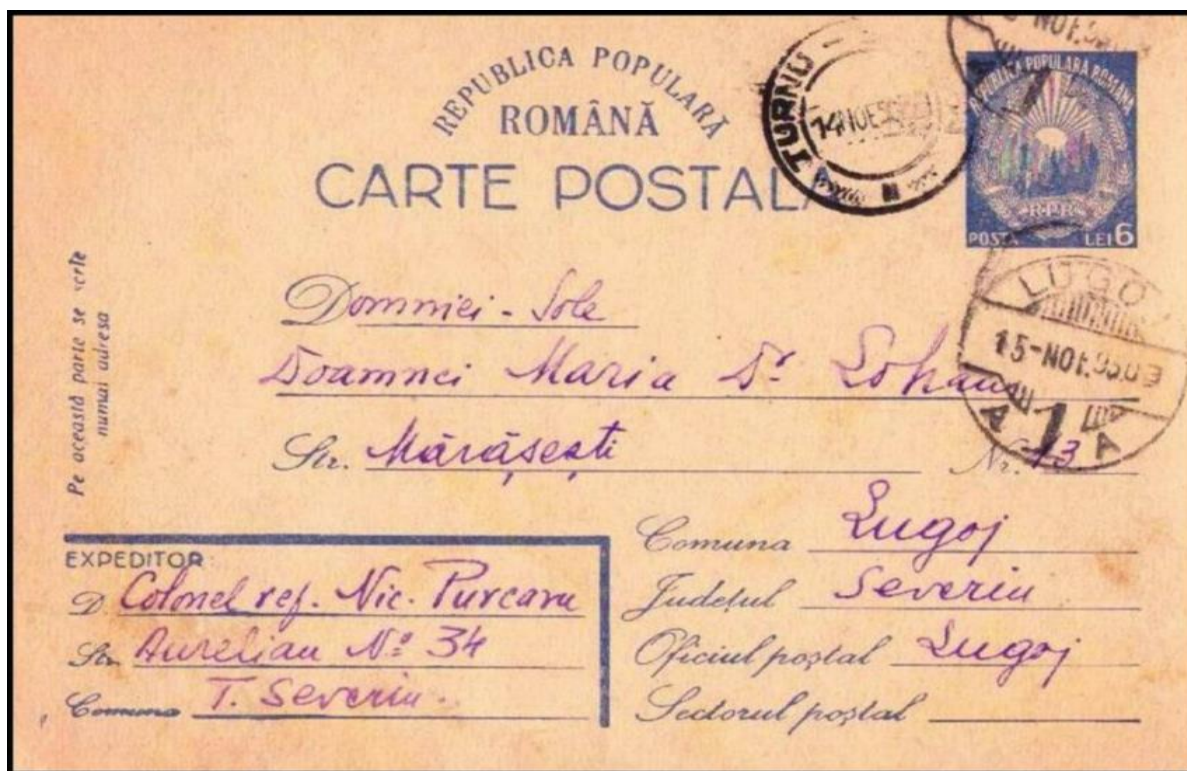 REPUBLICA POPULARĂ
ROMÂNĂ
CARTE POSTALĂ
REPUBLICA POPULARA ROMANA
R.P.R.
POSTA LEI 6
TURNU
14 NOE
15-NOE.950
LUGOJ
A 1 A
Pe această parte se scrie
numai adresa
Domniei-Sale
Doamnei Maria Dr. Lohan
Str. Mărășești Nr. 13
Comuna Lugoj
Județul Severin
Oficiul poștal Lugoj
Sectorul poștal
EXPEDITOR:
D. Colonel rez. Nic. Purcaru
Str. Aurelian No 34
Comuna T. Severin.